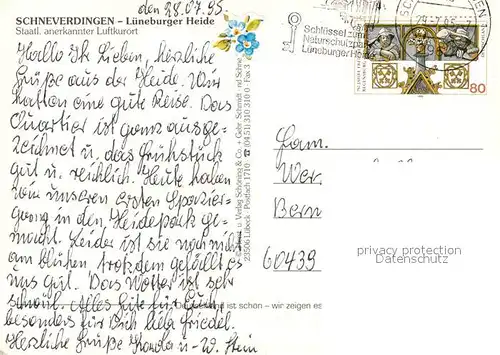 den 28.07.95
SCHNEVERDINGEN – Lüneburger Heide
Staatl. anerkannter Luftkurort
Hallo Ihr Lieben, herzliche
Grüße aus der Heide. Wir
hatten eine gute Reise. Das
Quartier ist ganz ausge-
zeichnet u. das Frühstück
gut u. reichlich. Heute haben
wir unseren ersten Spazier-
gang in den Heidepark ge-
macht. Leider ist sie noch nicht
am blühen, trotzdem gefällt es
uns gut. Das Wetter ist sehr
schön. Alles Gute für Euch
besonders für Dich liebe Friedel.
Herzliche Grüße u. W. Stein
ist schön – wir zeigen es
u. Verlag Schöning & Co. + Gebr. Schmidt
23506 Lübeck · Postfach 1710 · ☎ (04 51) 310 310
Schlüssel zum
Naturschutzpark
Lüneburger Heide
80
Fam.
Wer.
Bern
60439
privacy protection
Datenschutz